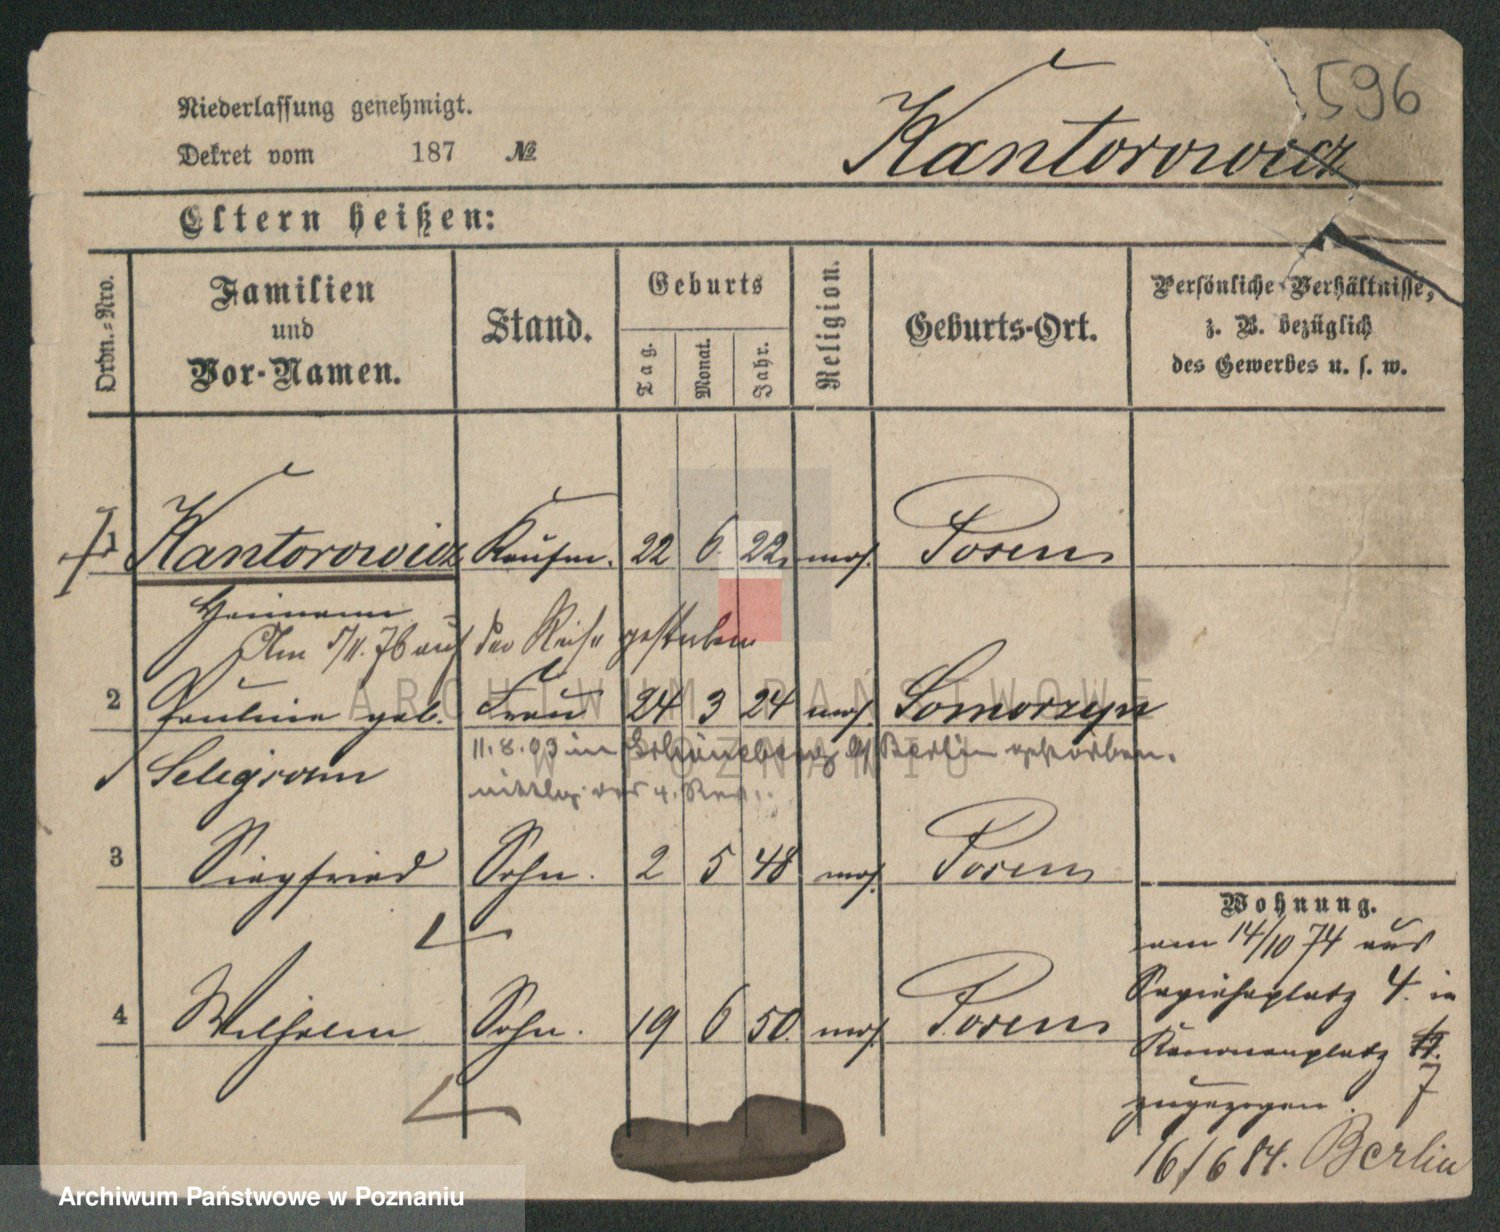 596
Niederlassung genehmigt.
Kantorowicz
Dekret vom 187 №
Eltern heißen:
Ordn.-Nro.
Familien
und
Vor-Namen.
Stand.
Geburts
Tag.
Monat.
Jahr.
Religion.
Geburts-Ort.
Persönliche Verhältnisse,
z. B. bezüglich
des Gewerbes u. s. w.
1 Kantorowicz Kaufm. 22 6. 22. mos. Posen
Heimann
Am 5/11. 76 auf der Reise gestorben
2 Pauline geb. Frau 24 3 24 mos. Somorzyn
Seligsohn
11.8.03 in Schöneberg b/Berlin gestorben.
3 Siegfried Sohn. 2 5 48 mos. Posen
4 Wilhelm Sohn. 19 6 50. mos. Posen
Wohnung.
am 14/10 74 aus
Sapiehaplatz 4. in
Kanonenplatz
7
zugezogen.
16/6 84. Berlin
ARCHIWUM PAŃSTWOWE
W POZNANIU
Archiwum Państwowe w Poznaniu